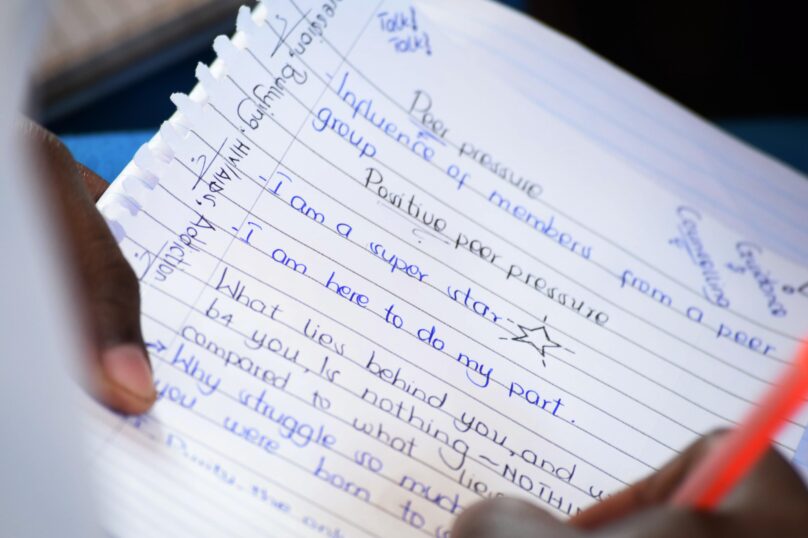 Talk!
Talk!
Peer pressure
Influence of members from a peer
group
Positive peer pressure
I am a super star
I am here to do my part.
What lies behind you, and
b4 you, Is nothing ~ NOTHIN
compared to what lies
→ Why struggle so much
you were born to
Counselling
&
Guidance
Bullying, HIV/AIDS, Addiction